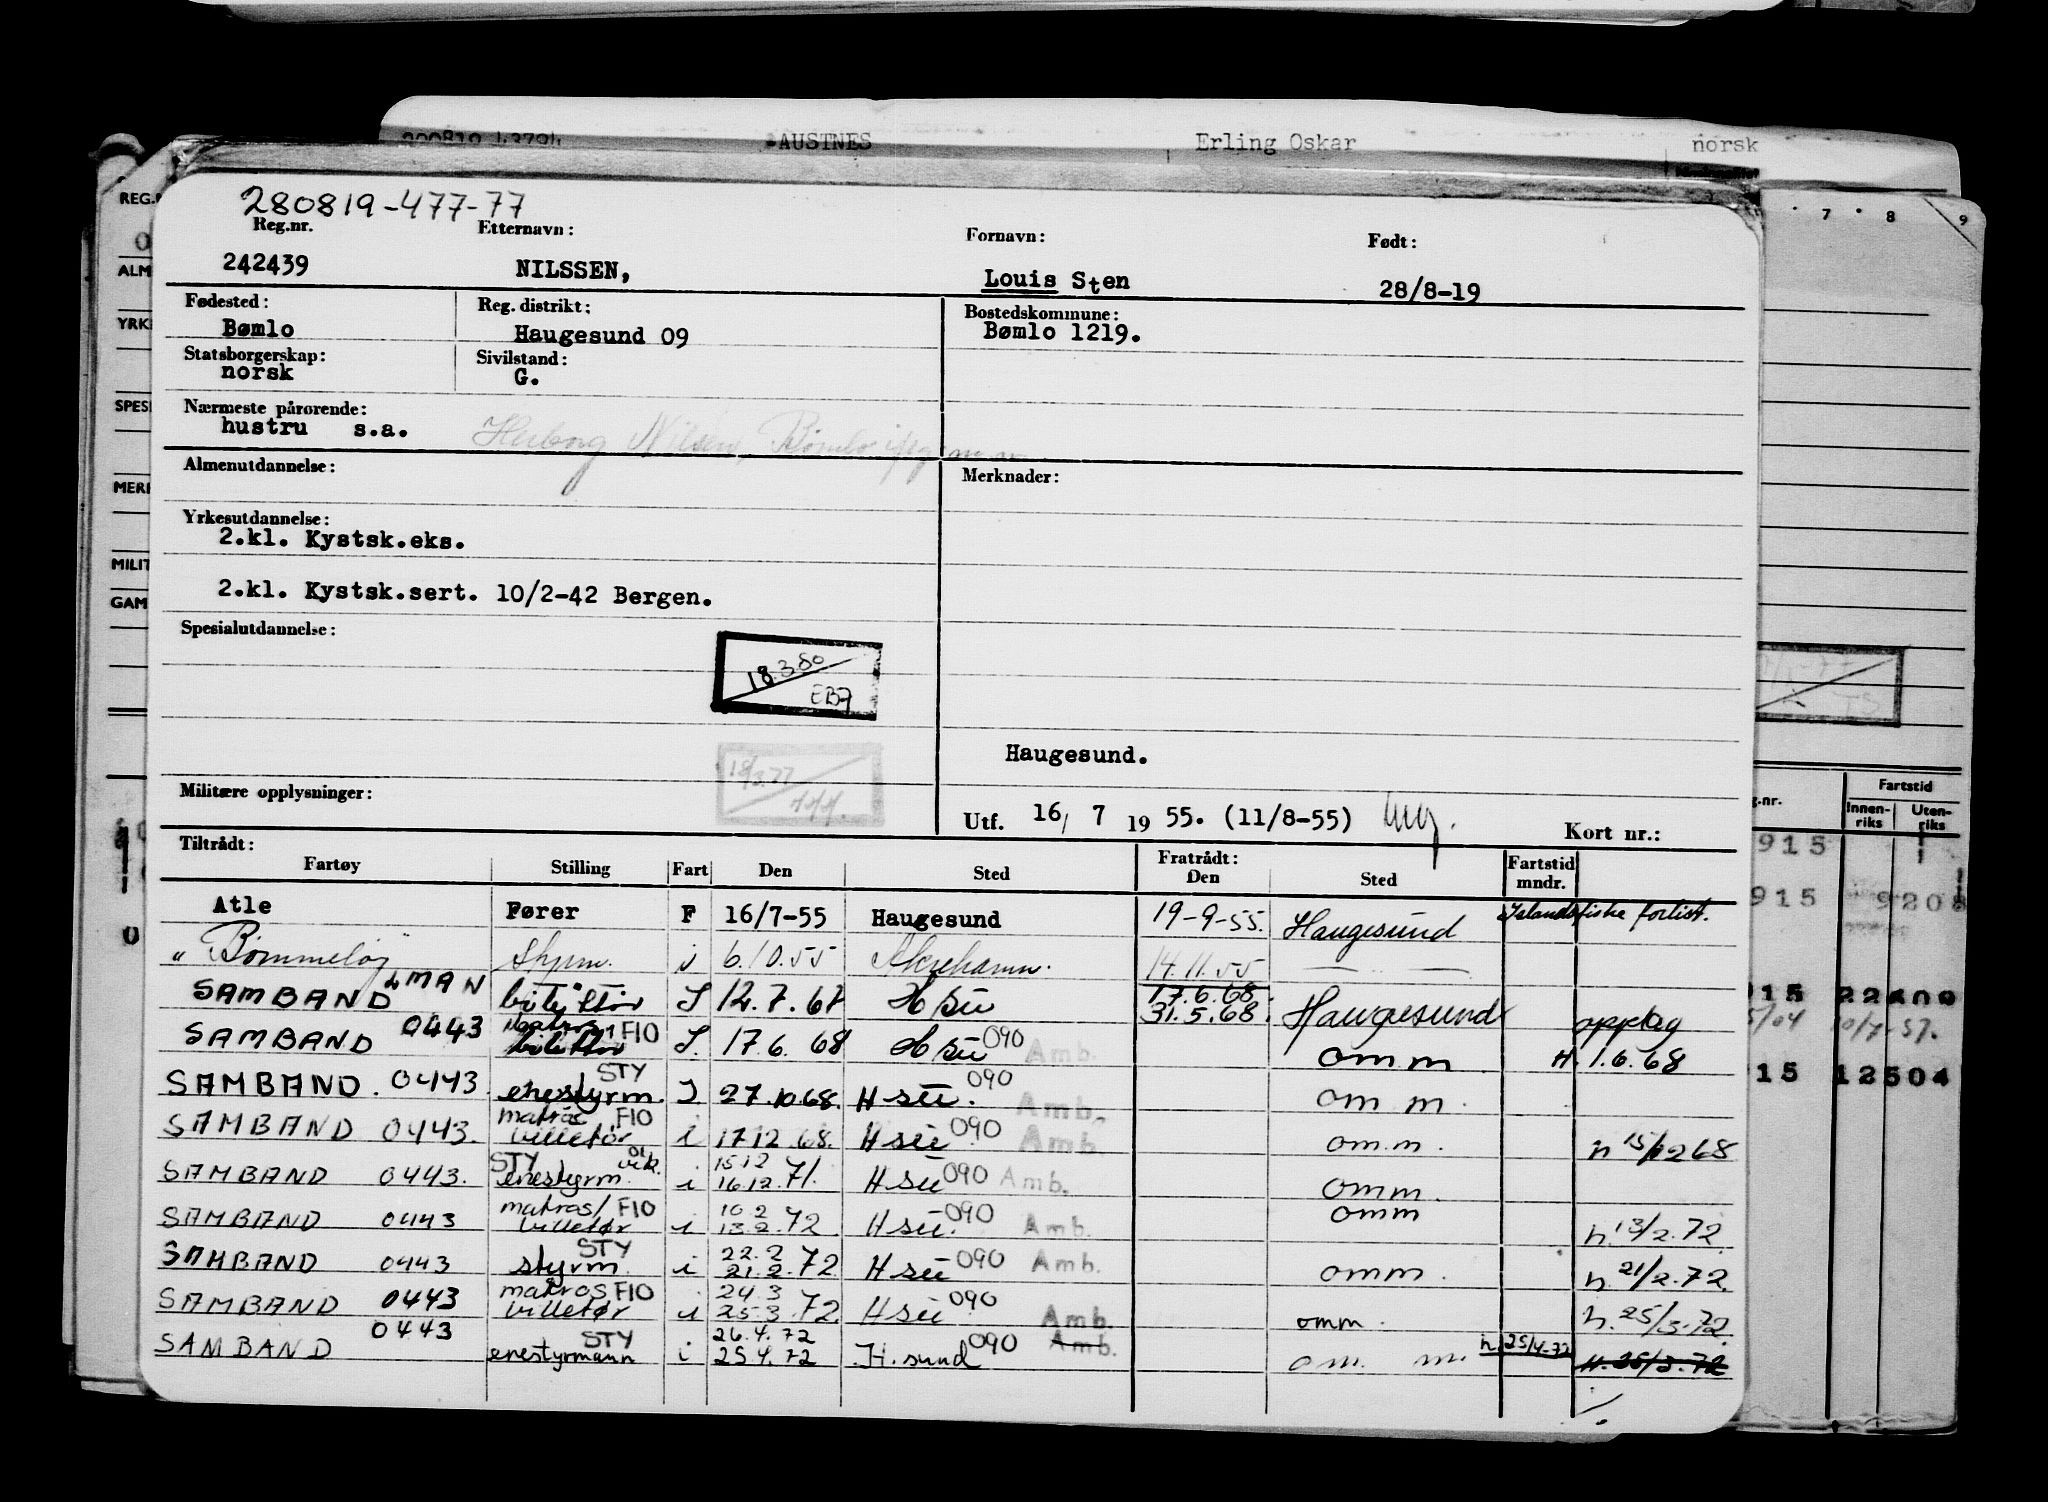 AUSTNES Erling Oskar norsk
280819-477-77
Reg.nr. Etternavn: Fornavn: Født:
242439 NILSSEN, Louis Sten 28/8-19
Fødested: Reg. distrikt: Bostedskommune:
Bømlo Haugesund 09 Bømlo 1219.
Statsborgerskap: Sivilstand:
norsk G.
Nærmeste pårørende:
hustru s.a. Nilsen, Bømlo
Almenutdannelse: Merknader:
Yrkesutdannelse:
2.kl. Kystsk.eks.
2.kl. Kystsk.sert. 10/2-42 Bergen.
Spesialutdannelse:
18.3.80
EB7
Haugesund.
18/3.77
Militære opplysninger:
Utf. 16/ 7 19 55. (11/8-55) Kort nr.:
Tiltrådt: Fratrådt: Fartstid
Fartøy Stilling Fart Den Sted Den Sted mndr.
Atle Fører F 16/7-55 Haugesund 19-9-55. Haugesund Islandsfiske forlist.
"Bømmeløy" styrm. i 6.10.55 Åkrehamn. 14.11.55
SAMBAND LMAN I 12.7.67 H su 17.6.68 31.5.68. Haugesund opptag
SAMBAND 0443 matros F10 I. 17.6.68 H su 090 Amb. omm H. 1.6.68
SAMBAND. 0443 STY enestyrm. I 27.10.68. H su. 090 Amb. om m.
SAMBAND 0443. matros F10 billetør i 17.12.68. H su 090 Amb. omm. n 15/12 68
SAMBAND 0443. STY enestyrm. vik. i 15.12 16.12.71. H su 090 Amb. omm.
SAMBAND 0443 matros/ F10 billetør i 10.2 13.2.72 H su. 090 Amb. omm n. 13/2.72.
SAMBAND 0443 STY styrm. i 22.2 21.2.72 H su 090 Amb. omm. n 21/2.72.
SAMBAND 0443 matros F10 billetør i 24.3 25.3.72 H su 090 Amb. omm. n. 25/3.72.
SAMBAND 0443 STY enestyrmann i 26.4.72 25.4.72 H. sund 090 Amb. om. m. n. 25/4-72 H. 25/3.72
REG.
ALM
YRK
SPES
MERK
MILIT
GAM
7 8 9
Fartstid
Innen-riks Uten-riks
915
915 9208
15 22400
15 12504